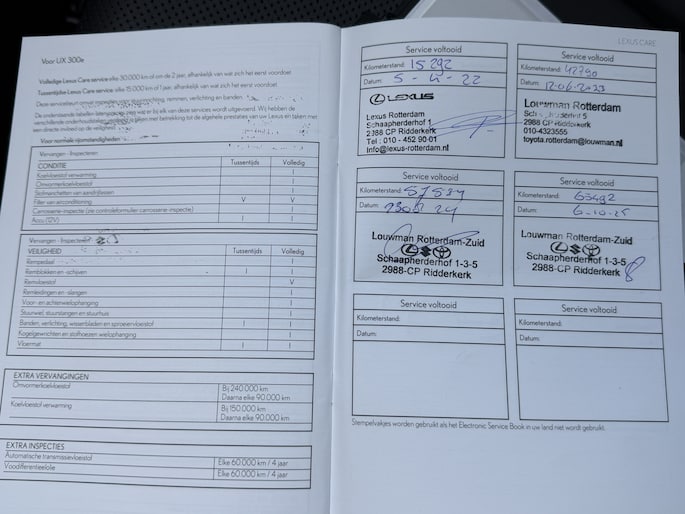 Voor UX 300e
Volledige Lexus Care service elke 30.000 km of om de 2 jaar, afhankelijk van wat zich het eerst voordoet
Tussentijdse Lexus Care service elke 15.000 km of 1 jaar, afhankelijk van wat zich het eerst voordoet
Voor normale rijomstandigheden
Vervangen - Inspecteren
CONDITIE Tussentijds Volledig
Koelvloeistof verwarming I
Omvormerkoelvloeistof I
Stofmanchetten van aandrijfassen I
Filter van airconditioning V V
Carrosserie-inspectie (zie controleformulier carrosserie-inspectie) I
Accu (12V) I I
Vervangen - Inspecteren
VEILIGHEID Tussentijds Volledig
Rempedaal I
Remblokken en -schijven I I
Remvloeistof V
Remleidingen en -slangen I
Voor- en achterwielophanging I
Stuurwiel, stuurstangen en stuurhuis I
Banden, verlichting, wisserbladen en sproeiervloeistof I I
Kogelgewrichten en stofhoezen wielophanging I
Vloermat I I
EXTRA VERVANGINGEN
Omvormerkoelvloeistof Bij 240.000 km
Daarna elke 90.000 km
Koelvloeistof verwarming Bij 150.000 km
Daarna elke 90.000 km
EXTRA INSPECTIES
Automatische transmissievloeistof Elke 60.000 km / 4 jaar
Voordifferentieelolie Elke 60.000 km / 4 jaar
LEXUS CARE
Service voltooid
Kilometerstand: 15292
Datum: 5-4-22
LEXUS
Lexus Rotterdam
Schaapherderhof 1
2988 CP Ridderkerk
Tel : 010 - 452 90 01
Info@lexus-rotterdam.nl
Service voltooid
Kilometerstand: 42790
Datum: 12-06-2023
Louwman Rotterdam
2988 CP Ridderkerk
010-4323555
toyota.rotterdam@louwman.nl
Service voltooid
Kilometerstand:
Datum:
Louwman Rotterdam-Zuid
Schaapherderhof 1-3-5
2988-CP Ridderkerk
Service voltooid
Kilometerstand: 63492
Datum: 6-10-25
Louwman Rotterdam-Zuid
Schaapherderhof 1-3-5
2988-CP Ridderkerk
Service voltooid
Kilometerstand:
Datum:
Service voltooid
Kilometerstand:
Datum:
Stempelvakjes worden gebruikt als het Electronic Service Book in uw land niet wordt gebruikt.